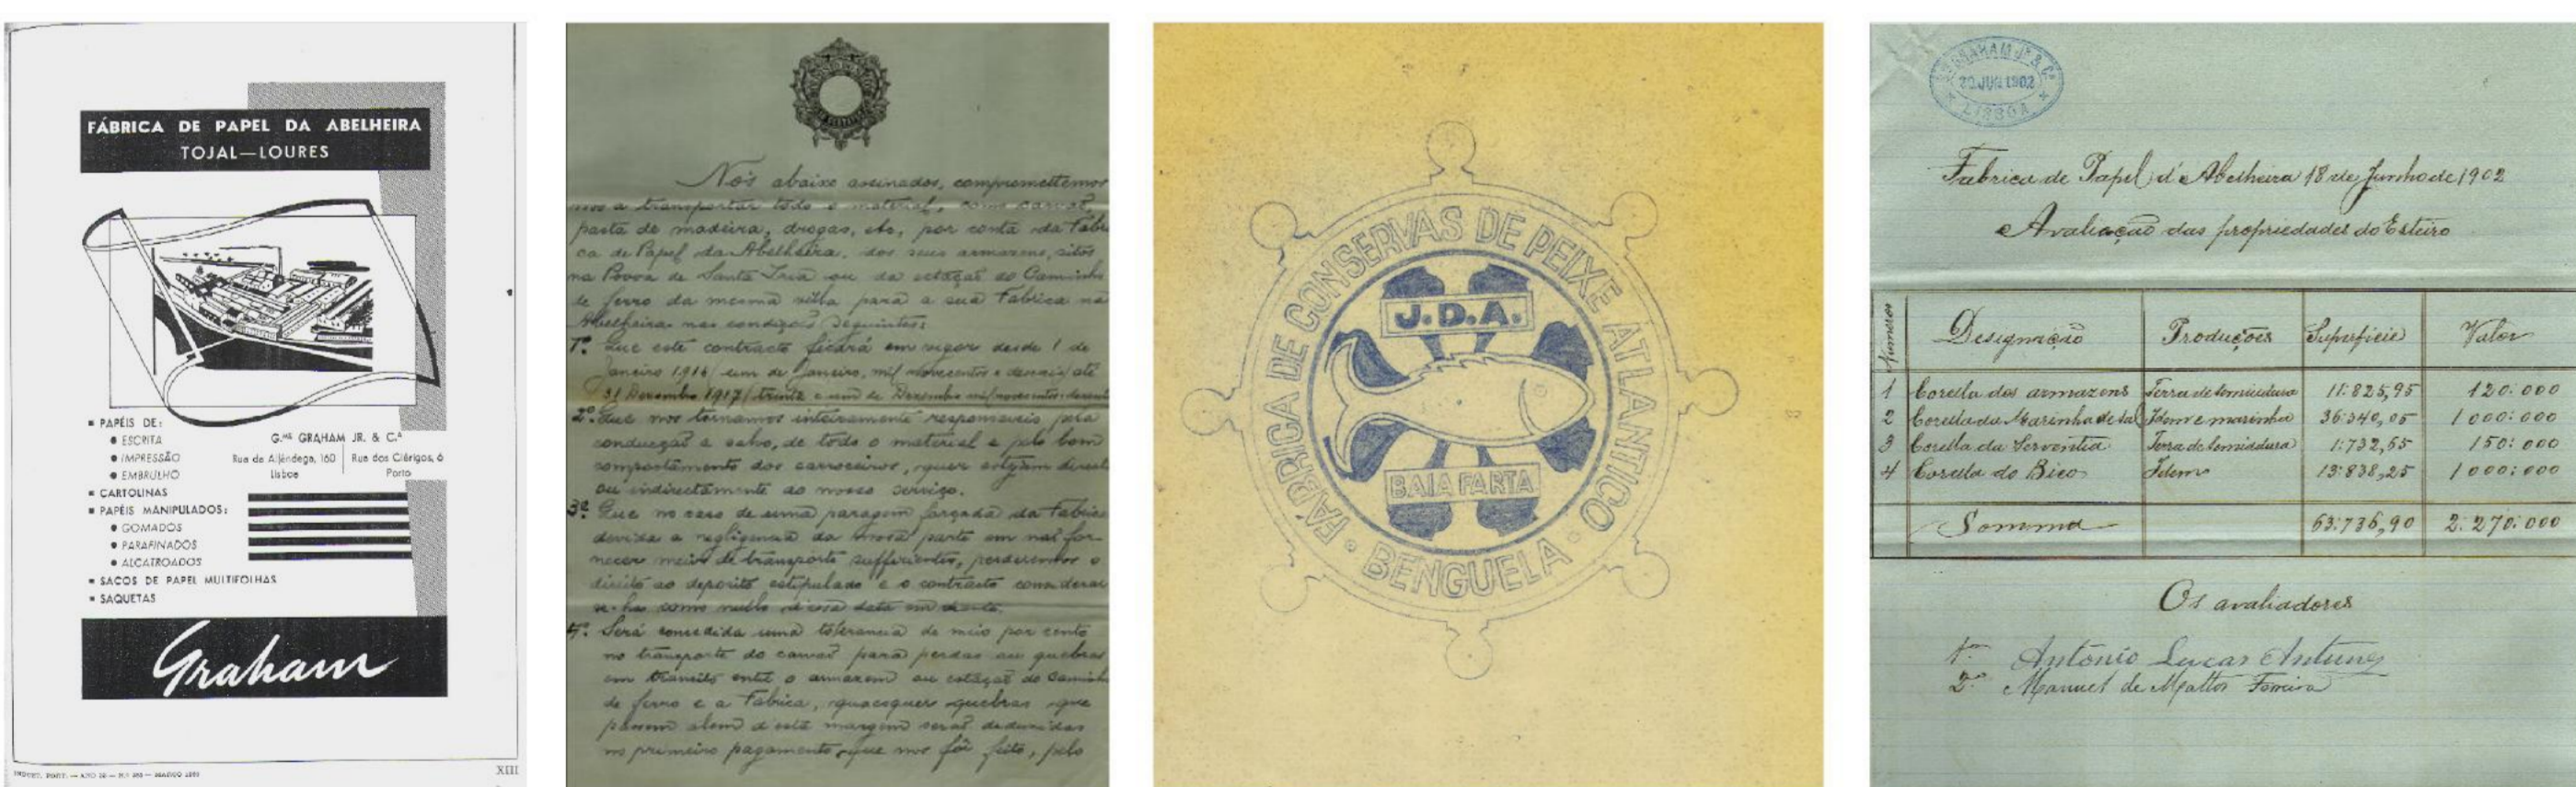 FÁBRICA DE PAPEL DA ABELHEIRA
TOJAL—LOURES
PAPÉIS DE:
ESCRITA
IMPRESSÃO
EMBRULHO
CARTOLINAS
PAPÉIS MANIPULADOS:
GOMADOS
PARAFINADOS
ALCATROADOS
SACOS DE PAPEL MULTIFOLHAS
SAQUETAS
G.ME GRAHAM JR. & C.ª
Rua da Alfândega, 160
Lisboa
Rua dos Clérigos, 6
Porto
Graham
XIII
Nós abaixo assinados, compromettemos
nos a transportar todo o material, como carvaõ,
pasta de madeira, drogas, etc, por conta da Fabri
ca de Papel da Abelheira, dos seus armazens, sitos
na Povoa de Santa Iria ou da estaçaõ do Caminho
de ferro da mesma villa para a sua Fabrica na
Abelheira nas condições seguintes:
1º. Que este contracto ficará em vigor desde 1 de
Janeiro 1916/ um de Janeiro, mil novecentos e deseseis/ até
31 Dezembro 1917/ trinta e um de Dezembro mil novecentos
2º. Que nos tornamos inteiramente responsaveis pela
conducçaõ a salvo, de todo o material e pelo bom
comportamento dos carroceiros, quer estejam directa
ou indirectamente ao nosso serviço.
3º. Que no caso de uma paragem forçada da Fabrica
devida a negligencia da nossa parte em naõ for
necer meios de transporte sufficientes, perderemos o
direito ao deposito estipulado e o contracto considerar
se-ha como nullo d'essa data em deante.
4º. Será concedida uma tolerancia de meio por cento
no transporte do carvaõ para perdas ou quebras
em transito entre o armazem ou estaçaõ do Caminho
de ferro e a Fabrica, quaesquer quebras que
passem alem d'esta margem seraõ deduzidas
no primeiro pagamento que nos fôr feito, pelo
FÁBRICA DE CONSERVAS DE PEIXE ATLANTICO
J.D.A.
BAIA FARTA
BENGUELA
GRAHAM Jr. & Cª
20 JUN 1902
LISBOA
Fabrica de Papel d'Abelheira 18 de Junho de 1902
Avaliação das propriedades do Esteiro
Numeros Designação Producções Superficie Valor
1 Corella dos armazens Terra de semeadura 11:825,95 120:000
2 Corella da Marinha de sal Idem e marinha 36:340,05 1000:000
3 Corella da Serventia Terra de semeadura 1:732,65 150:000
4 Corella do Bico Idem 13:838,25 1000:000
Somma 63:736,90 2:270:000
Os avaliadores
1º Antonio Lucas Antunes
2º Manuel de Mattos Ferreira